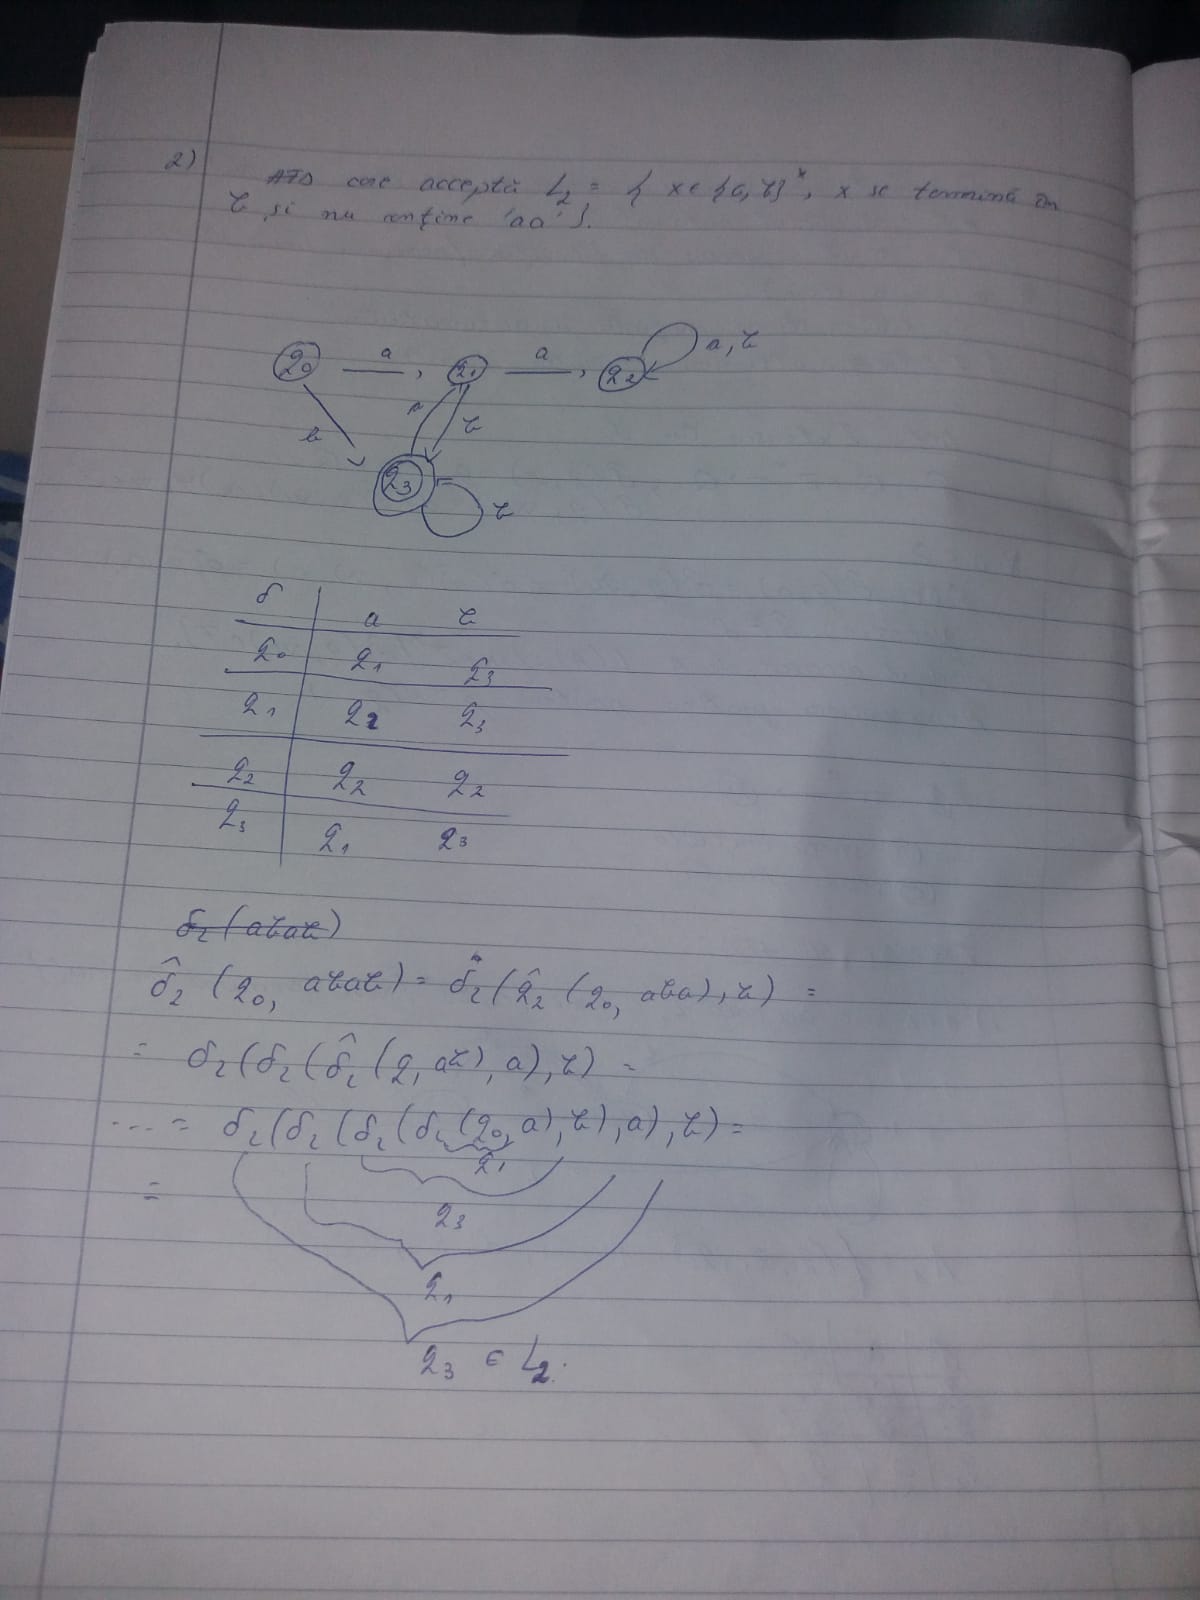 2)
AFD care acceptă L₂ = { x ∈ {a, b}*, x se termină în
b și nu conține 'aa' }.
q₀ a q₁ a q₂ a, b
b a b
q₃ b
δ a b
q₀ q₁ q₃
q₁ q₂ q₃
q₂ q₂ q₂
q₃ q₁ q₃
δ₂ (abab)
δ̂₂ (q₀, abab) = δ₂ (q̂₂ (q₀, aba), b) =
= δ₂ (δ₂ (δ̂₂ (q, ab), a), b) =
... = δ₂ (δ₂ (δ₂ (δ₂ (q₀, a), b), a), b) =
q₁
=
q₃
q₁
q₃ ∈ L₂.